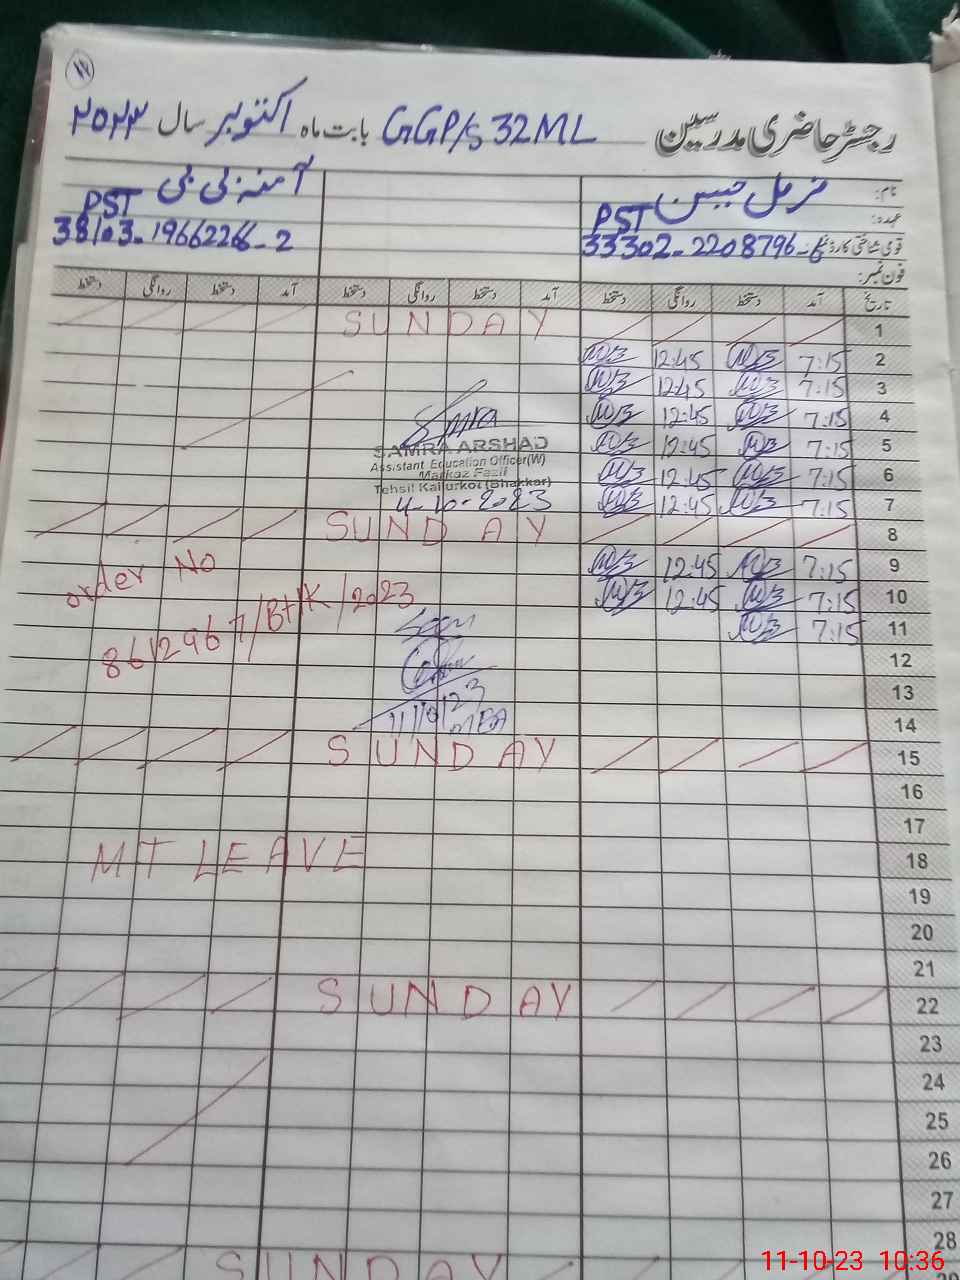 رجسٹر حاضری مدرسین GGP/s 32ML بابت ماہ اکتوبر سال ۲۰۲۳
نام:
آمنہ بی بی
عہدہ: PST
PST
قومی شناختی کارڈ 33302-2208796-6
38103-19662266-2
فون نمبر:
تاریخ آمد دستخط روانگی دستخط آمد دستخط روانگی دستخط آمد دستخط روانگی دستخط
1 SUNDAY
2 7:15 12:45
3 7:15 12:45
4 7:15 12:45
5 7:15 12:45
6 7:15 12:45
7 7:15 12:45
SAMRA ARSHAD
Assistant Education Officer(W)
Markaz Fazil
Tehsil Kallurkot (Bhakkar)
4-10-2023
8 SUNDAY
9 7:15 12:45
10 7:15 12:45
11 7:15
order No
8612967/BHK/2023
12
13
11/10/23
MEA
14
15 SUNDAY
16
17
18 MT LEAVE
19
20
21
22 SUNDAY
23
24
25
26
27
28
29 SUNDAY
11-10-23 10:36